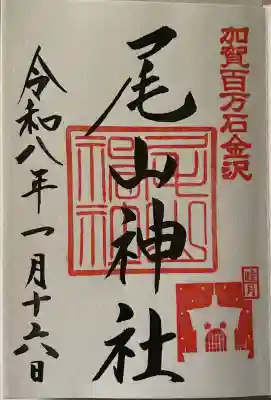 加賀百万石金沢
睦月
尾山神社
令和八年一月十六日